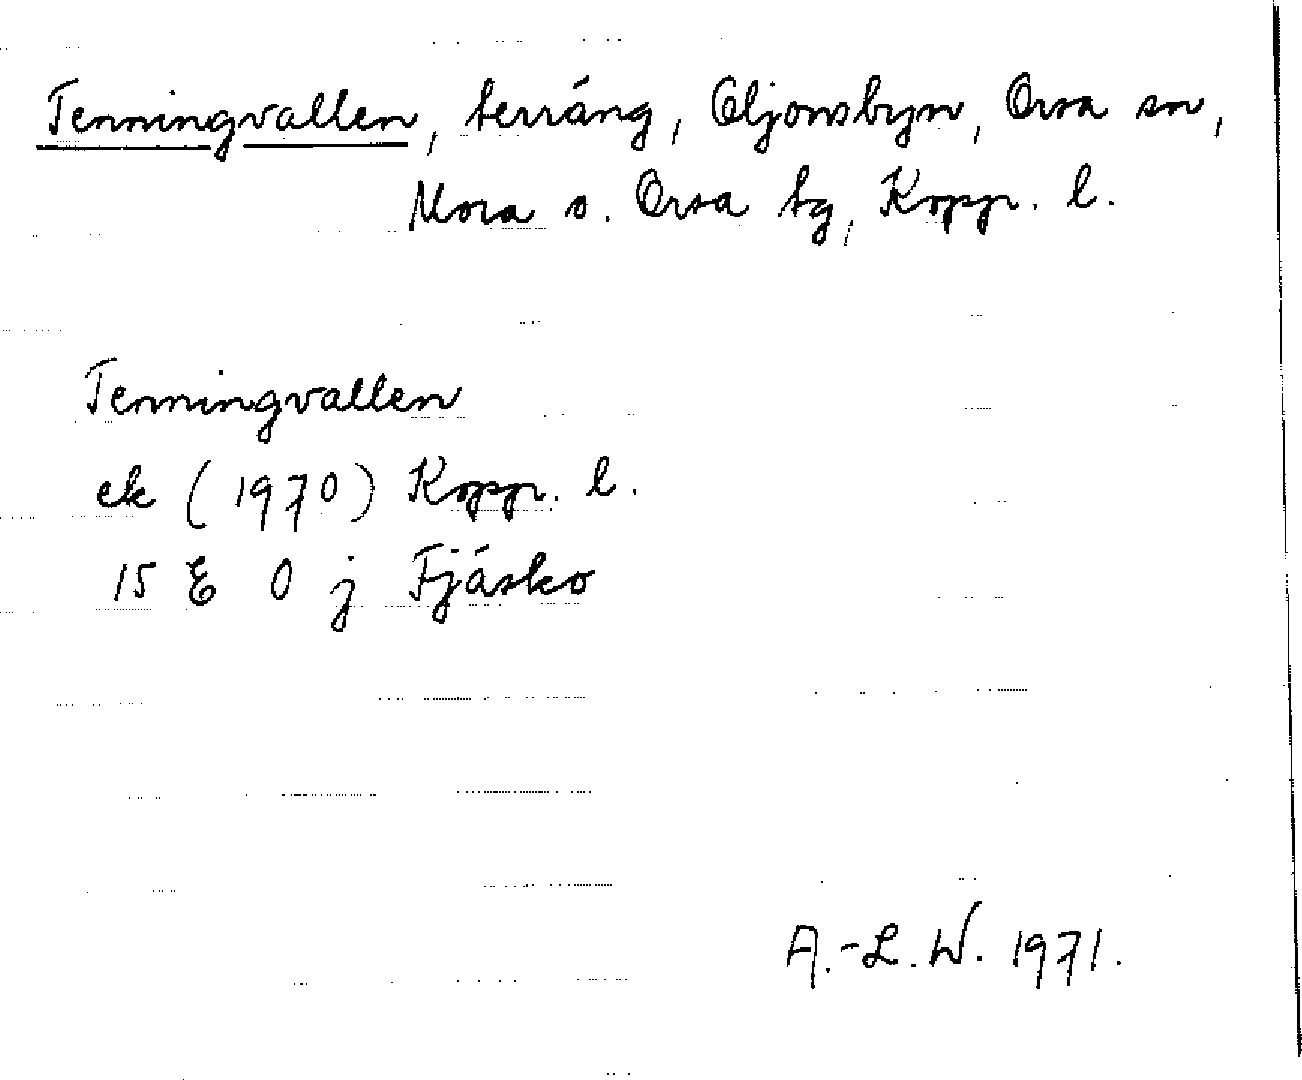 Tenningvallen, terräng, Oljonsbyn, Orsa sn,
Mora o. Orsa tg, Kopp. l.
Tenningvallen
ek (1970) Kopp. l.
15 E 0 j Fjäsko
A.-L. W. 1971.